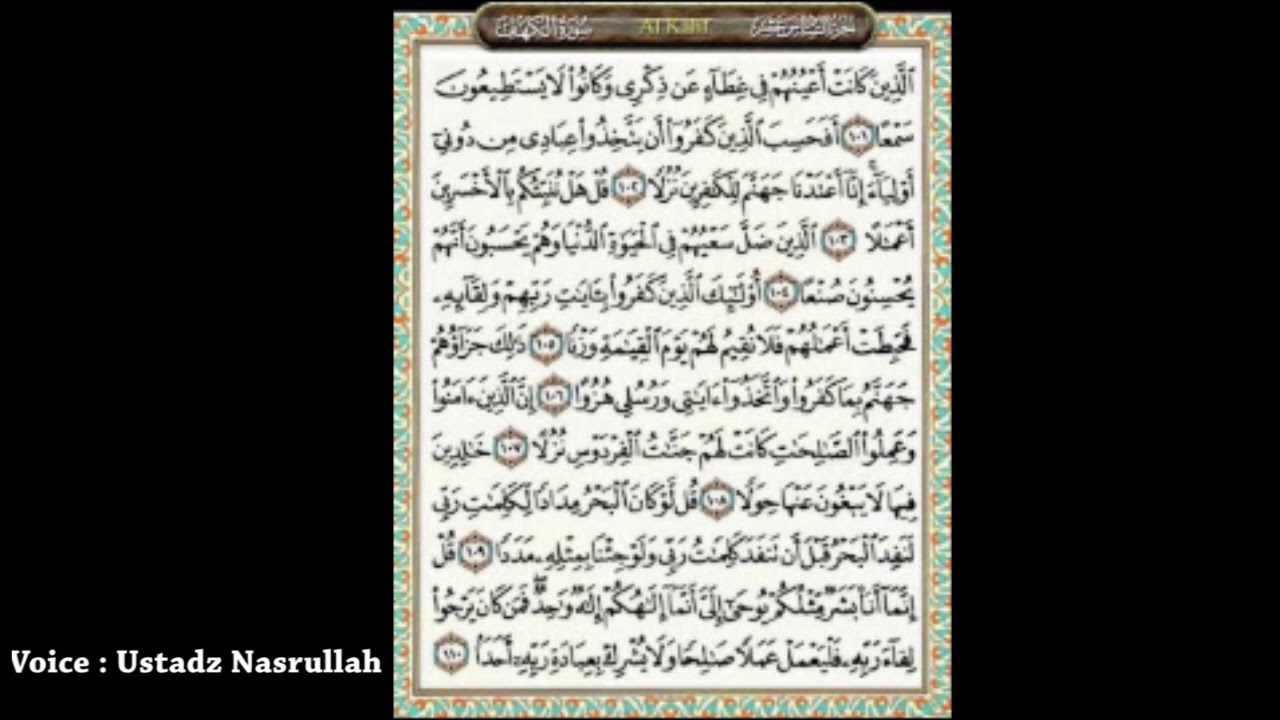 سُورَةُ الكَهْفِ Al Kahf الجُزْءُ السَّادِسَ عَشَرَ
ٱلَّذِينَ كَانَتْ أَعْيُنُهُمْ فِى غِطَآءٍ عَن ذِكْرِى وَكَانُوا۟ لَا يَسْتَطِيعُونَ
سَمْعًا ١٠١ أَفَحَسِبَ ٱلَّذِينَ كَفَرُوٓا۟ أَن يَتَّخِذُوا۟ عِبَادِى مِن دُونِىٓ
أَوْلِيَآءَ ۚ إِنَّآ أَعْتَدْنَا جَهَنَّمَ لِلْكَٰفِرِينَ نُزُلًا ١٠٢ قُلْ هَلْ نُنَبِّئُكُم بِٱلْأَخْسَرِينَ
أَعْمَٰلًا ١٠٣ ٱلَّذِينَ ضَلَّ سَعْيُهُمْ فِى ٱلْحَيَوٰةِ ٱلدُّنْيَا وَهُمْ يَحْسَبُونَ أَنَّهُمْ
يُحْسِنُونَ صُنْعًا ١٠٤ أُو۟لَٰٓئِكَ ٱلَّذِينَ كَفَرُوا۟ بِـَٔايَٰتِ رَبِّهِمْ وَلِقَآئِهِۦ
فَحَبِطَتْ أَعْمَٰلُهُمْ فَلَا نُقِيمُ لَهُمْ يَوْمَ ٱلْقِيَٰمَةِ وَزْنًا ١٠٥ ذَٰلِكَ جَزَآؤُهُمْ
جَهَنَّمُ بِمَا كَفَرُوا۟ وَٱتَّخَذُوٓا۟ ءَايَٰتِى وَرُسُلِى هُزُوًا ١٠٦ إِنَّ ٱلَّذِينَ ءَامَنُوا۟
وَعَمِلُوا۟ ٱلصَّٰلِحَٰتِ كَانَتْ لَهُمْ جَنَّٰتُ ٱلْفِرْدَوْسِ نُزُلًا ١٠٧ خَٰلِدِينَ
فِيهَا لَا يَبْغُونَ عَنْهَا حِوَلًا ١٠٨ قُل لَّوْ كَانَ ٱلْبَحْرُ مِدَادًا لِّكَلِمَٰتِ رَبِّى
لَنَفِدَ ٱلْبَحْرُ قَبْلَ أَن تَنفَدَ كَلِمَٰتُ رَبِّى وَلَوْ جِئْنَا بِمِثْلِهِۦ مَدَدًا ١٠٩ قُلْ
إِنَّمَآ أَنَا۠ بَشَرٌ مِّثْلُكُمْ يُوحَىٰٓ إِلَىَّ أَنَّمَآ إِلَٰهُكُمْ إِلَٰهٌ وَٰحِدٌ ۖ فَمَن كَانَ يَرْجُوا۟
لِقَآءَ رَبِّهِۦ فَلْيَعْمَلْ عَمَلًا صَٰلِحًا وَلَا يُشْرِكْ بِعِبَادَةِ رَبِّهِۦٓ أَحَدًۢا ١١٠
Voice : Ustadz Nasrullah